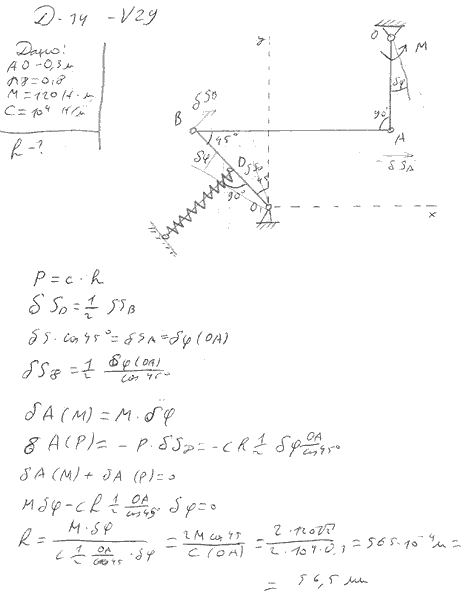 D-14 -V29
Дано:
AO=0,3м
AB=0,8
M=120 Н·м
C=10⁴ Н/м
h-?
y
O
M
δφ
90°
A
δS_A
B
δS_B
45°
δφ
D
δS_D
45
90°
O₁
x
P = c · h
δS_D = 1/2 δS_B
δS · cos 45° = δS_A = δφ(OA)
δS_B = 1/2 δφ(OA)/cos 45°
δA(M) = M · δφ
δA(P) = - P · δS_D = - ch 1/2 δφ OA/cos 45°
δA(M) + δA(P) = 0
Mδφ - ch 1/2 OA/cos 45° δφ = 0
h = M · δφ / (c 1/2 OA/cos 45 · δφ) = 2M cos 45 / C(OA) = 565 · 10⁻⁴ м =
= 56,5 мм